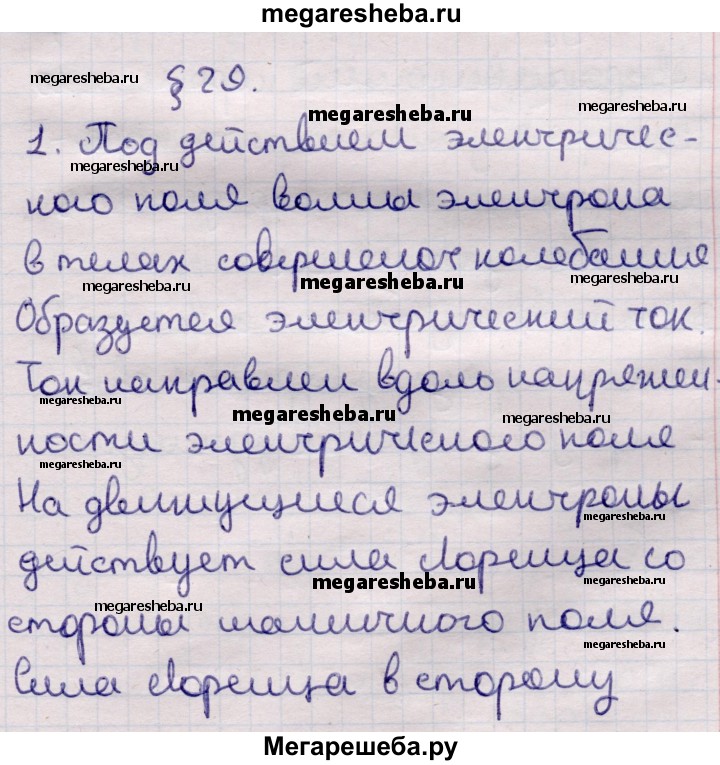 megaresheba.ru
megaresheba.ru
§ 29.
megaresheba.ru
megaresheba.ru
1. Под действием электричес-
megaresheba.ru
кого поля волны электрона
в телах совершают колебания
megaresheba.ru
megaresheba.ru
megaresheba.ru
Образуется электрический ток.
Ток направлен вдоль напряжен-
megaresheba.ru
megaresheba.ru
megaresheba.ru
ности электрического поля
megaresheba.ru
На движущиеся электроны
megaresheba.ru
действует сила Лоренца со
megaresheba.ru
megaresheba.ru
megaresheba.ru
стороны магничного поля.
megaresheba.ru
Сила Лоренца в сторону
Мегарешеба.ру